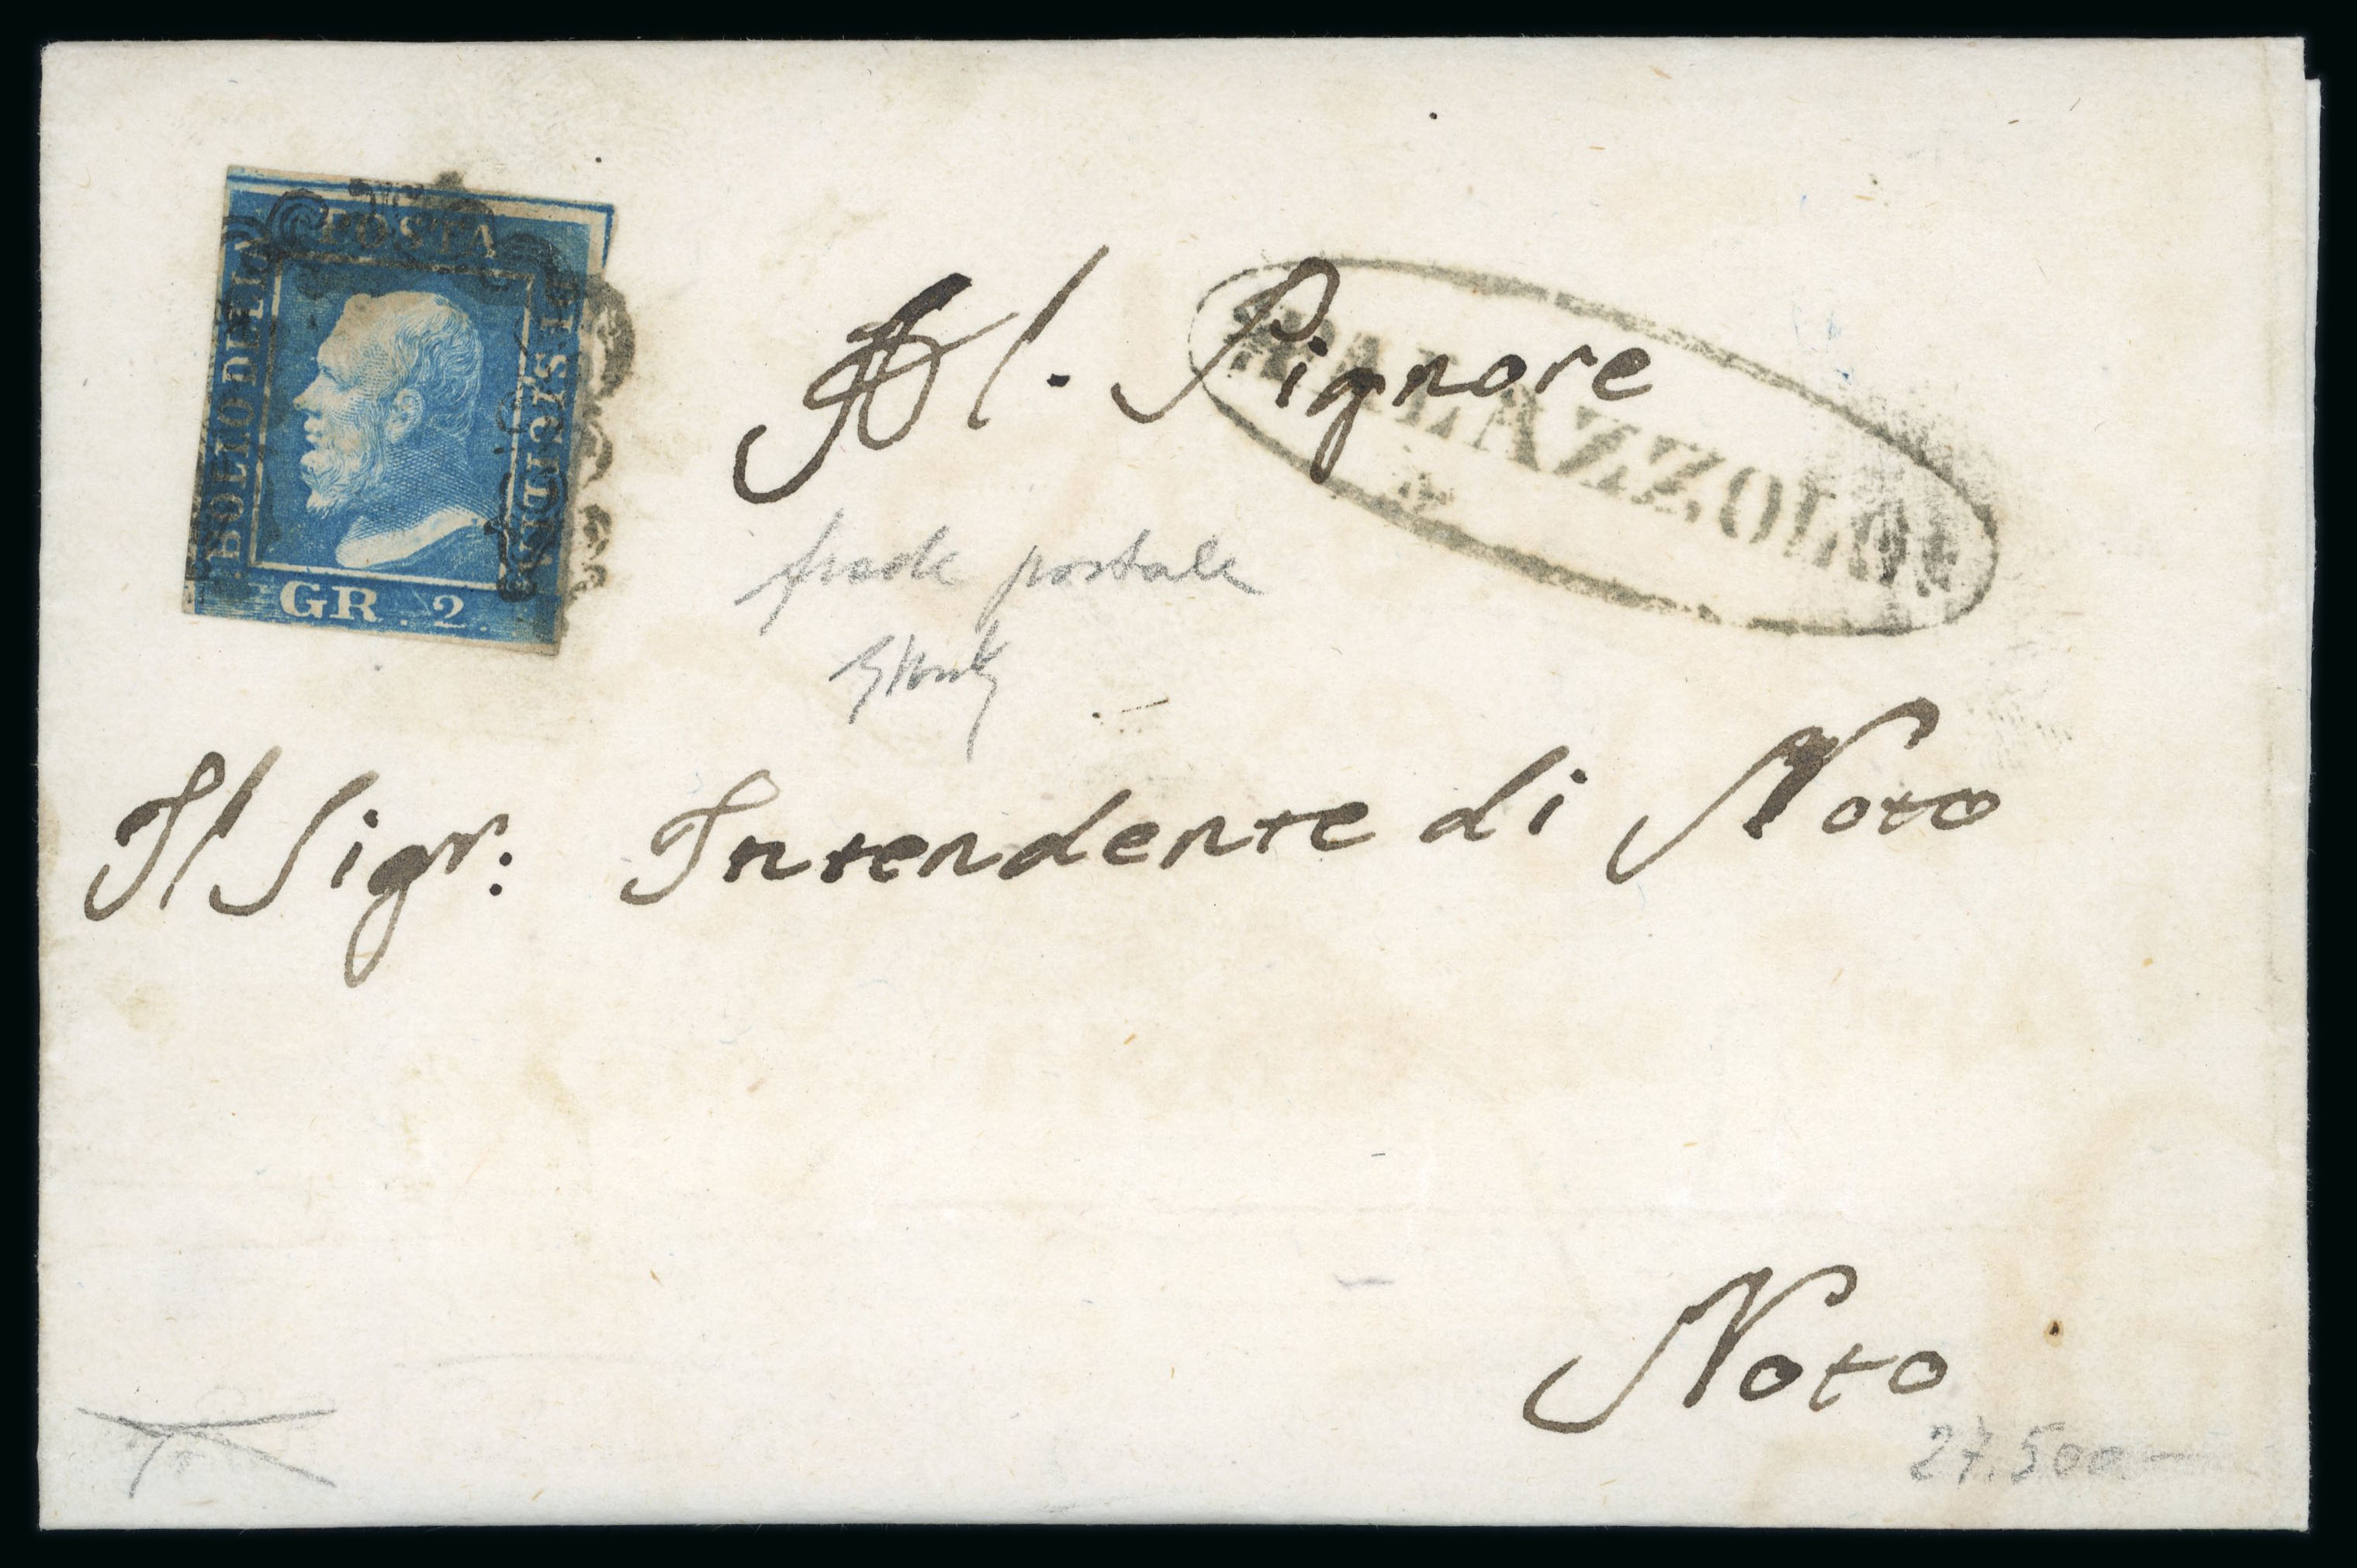 POSTA
BOLLO DELLA
DI SICILIA
GR. 2.
Al. Signore
PALAZZOLO
frode postale
Il Sigr: Intendente di Noto
Noto
27.500—